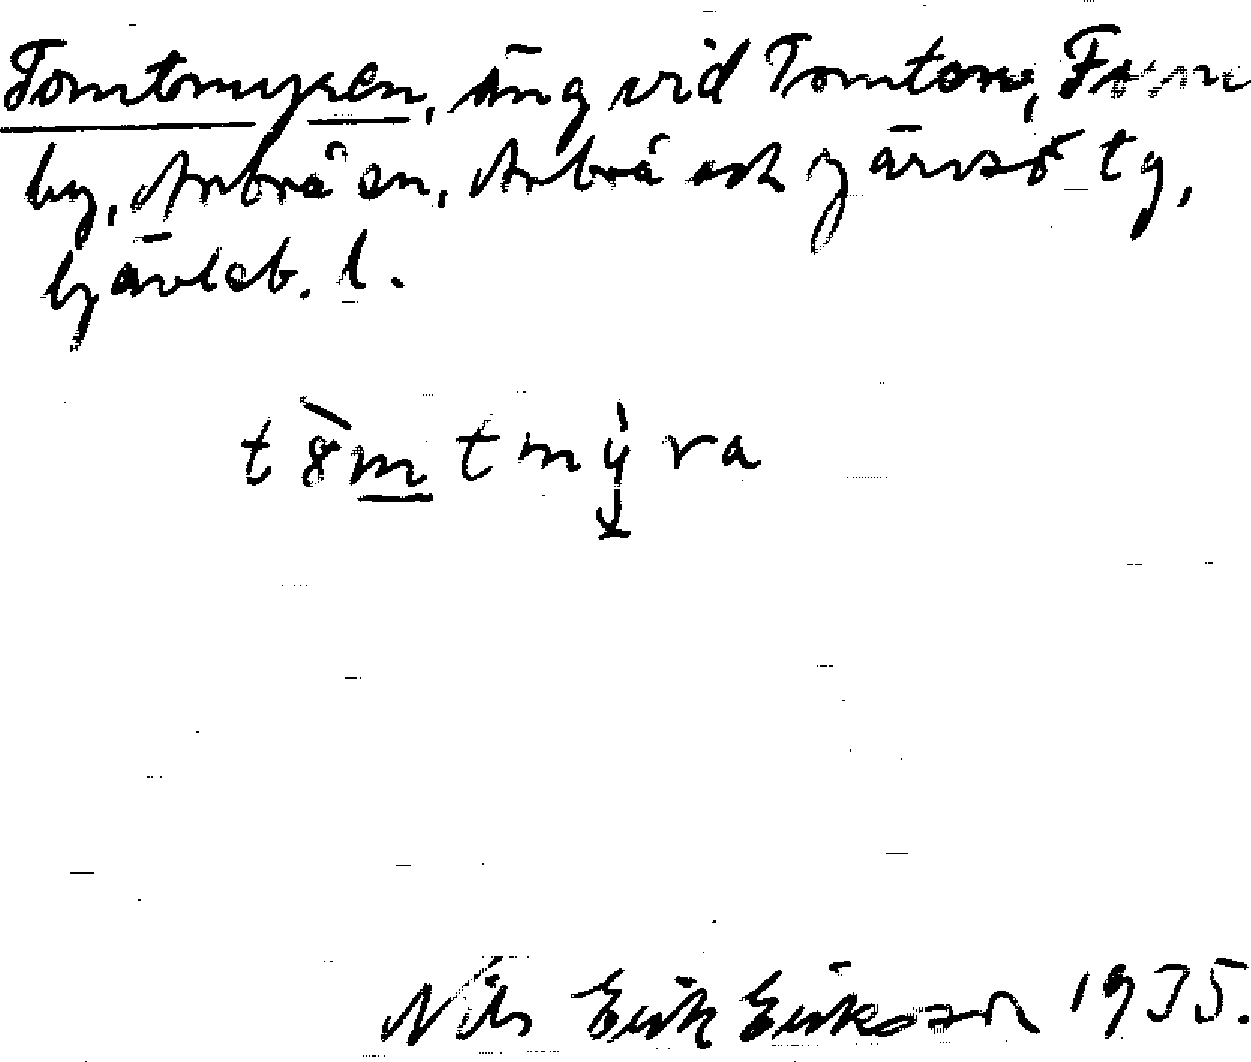 Tomtmyren, äng vid Tomten, Forn
by, Arbrå sn, Arbrå och Järvsö tg,
Gävleb. l.
tömtmỳra
Nils Erik Eriksson 1935.